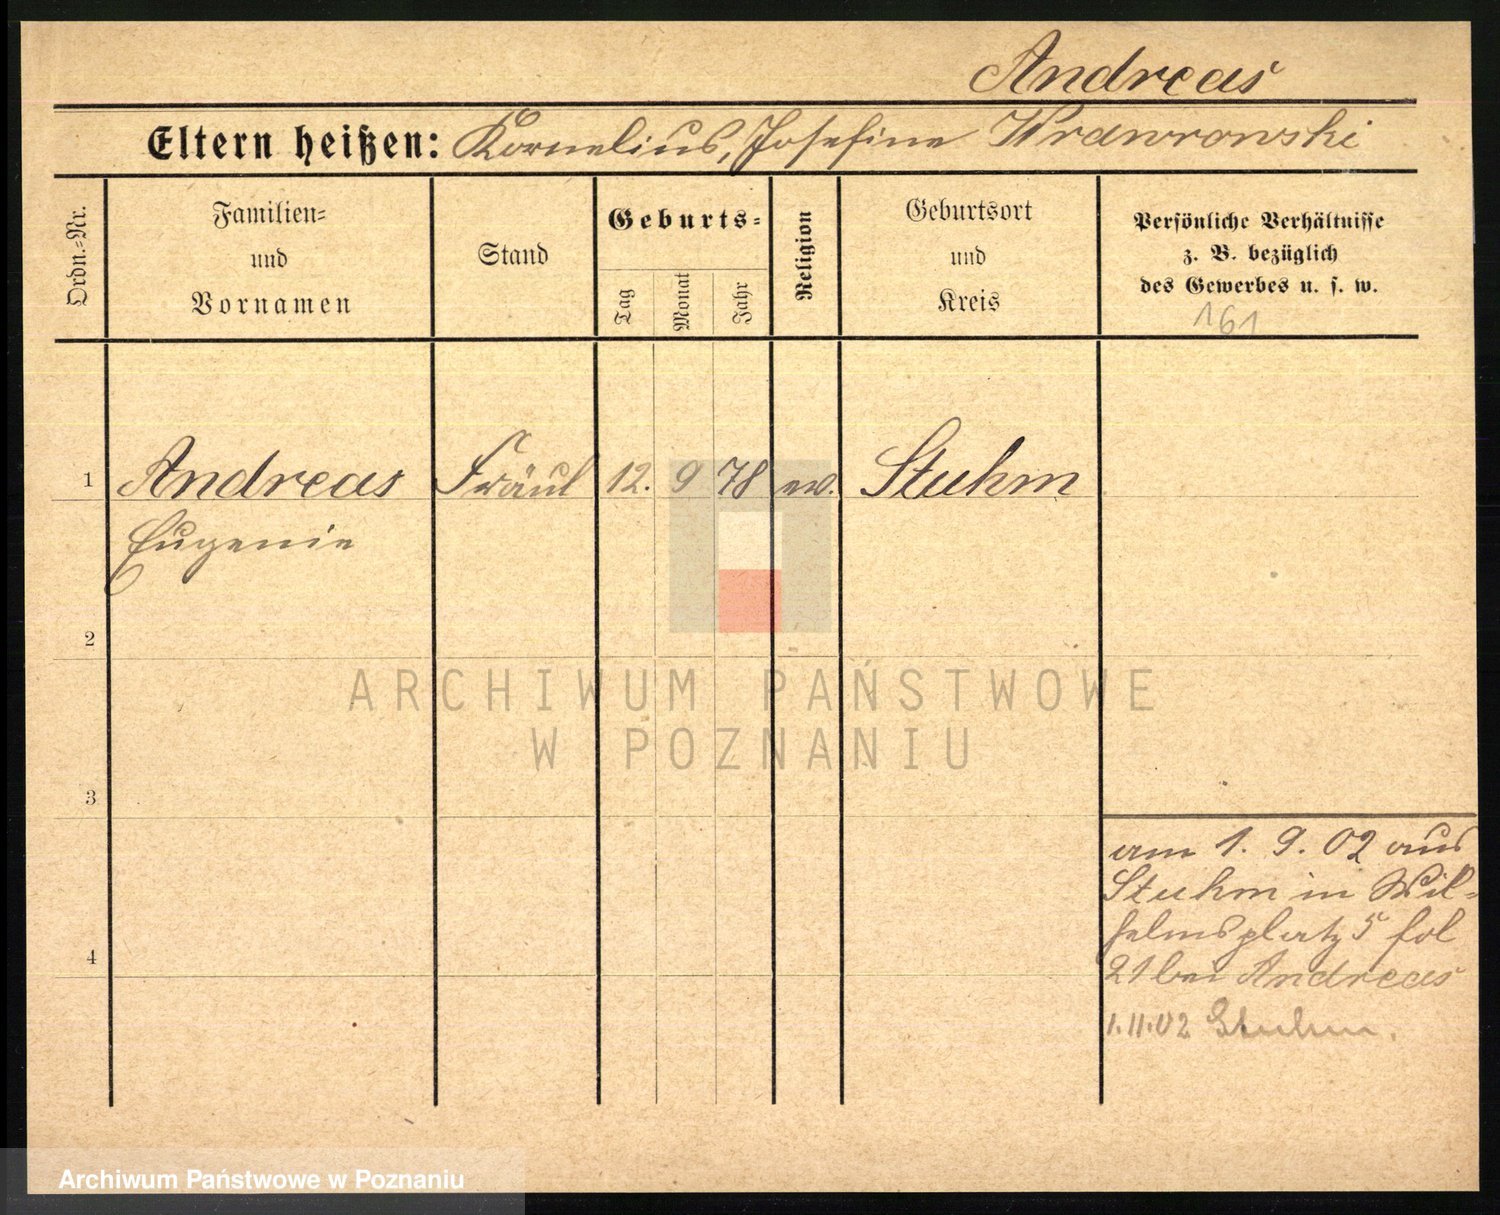 Andreas
Eltern heißen: Kornelius, Josefine Wrawrowski
Ordn.=Nr.
Familien=
und
Vornamen
Stand
Geburts=
Tag
Monat
Jahr
Religion
Geburtsort
und
Kreis
Persönliche Verhältnisse
z. B. bezüglich
des Gewerbes u. s. w.
161
1 Andreas Fräul 12. 9 78 ev. Stuhm
Eugenie
2
3
4
am 1. 9. 02 aus
Stuhm in Wil-
helmsplatz 5 fol
21 bei Andreas
1.11.02 Stuhm.
ARCHIWUM PAŃSTWOWE
W POZNANIU
Archiwum Państwowe w Poznaniu